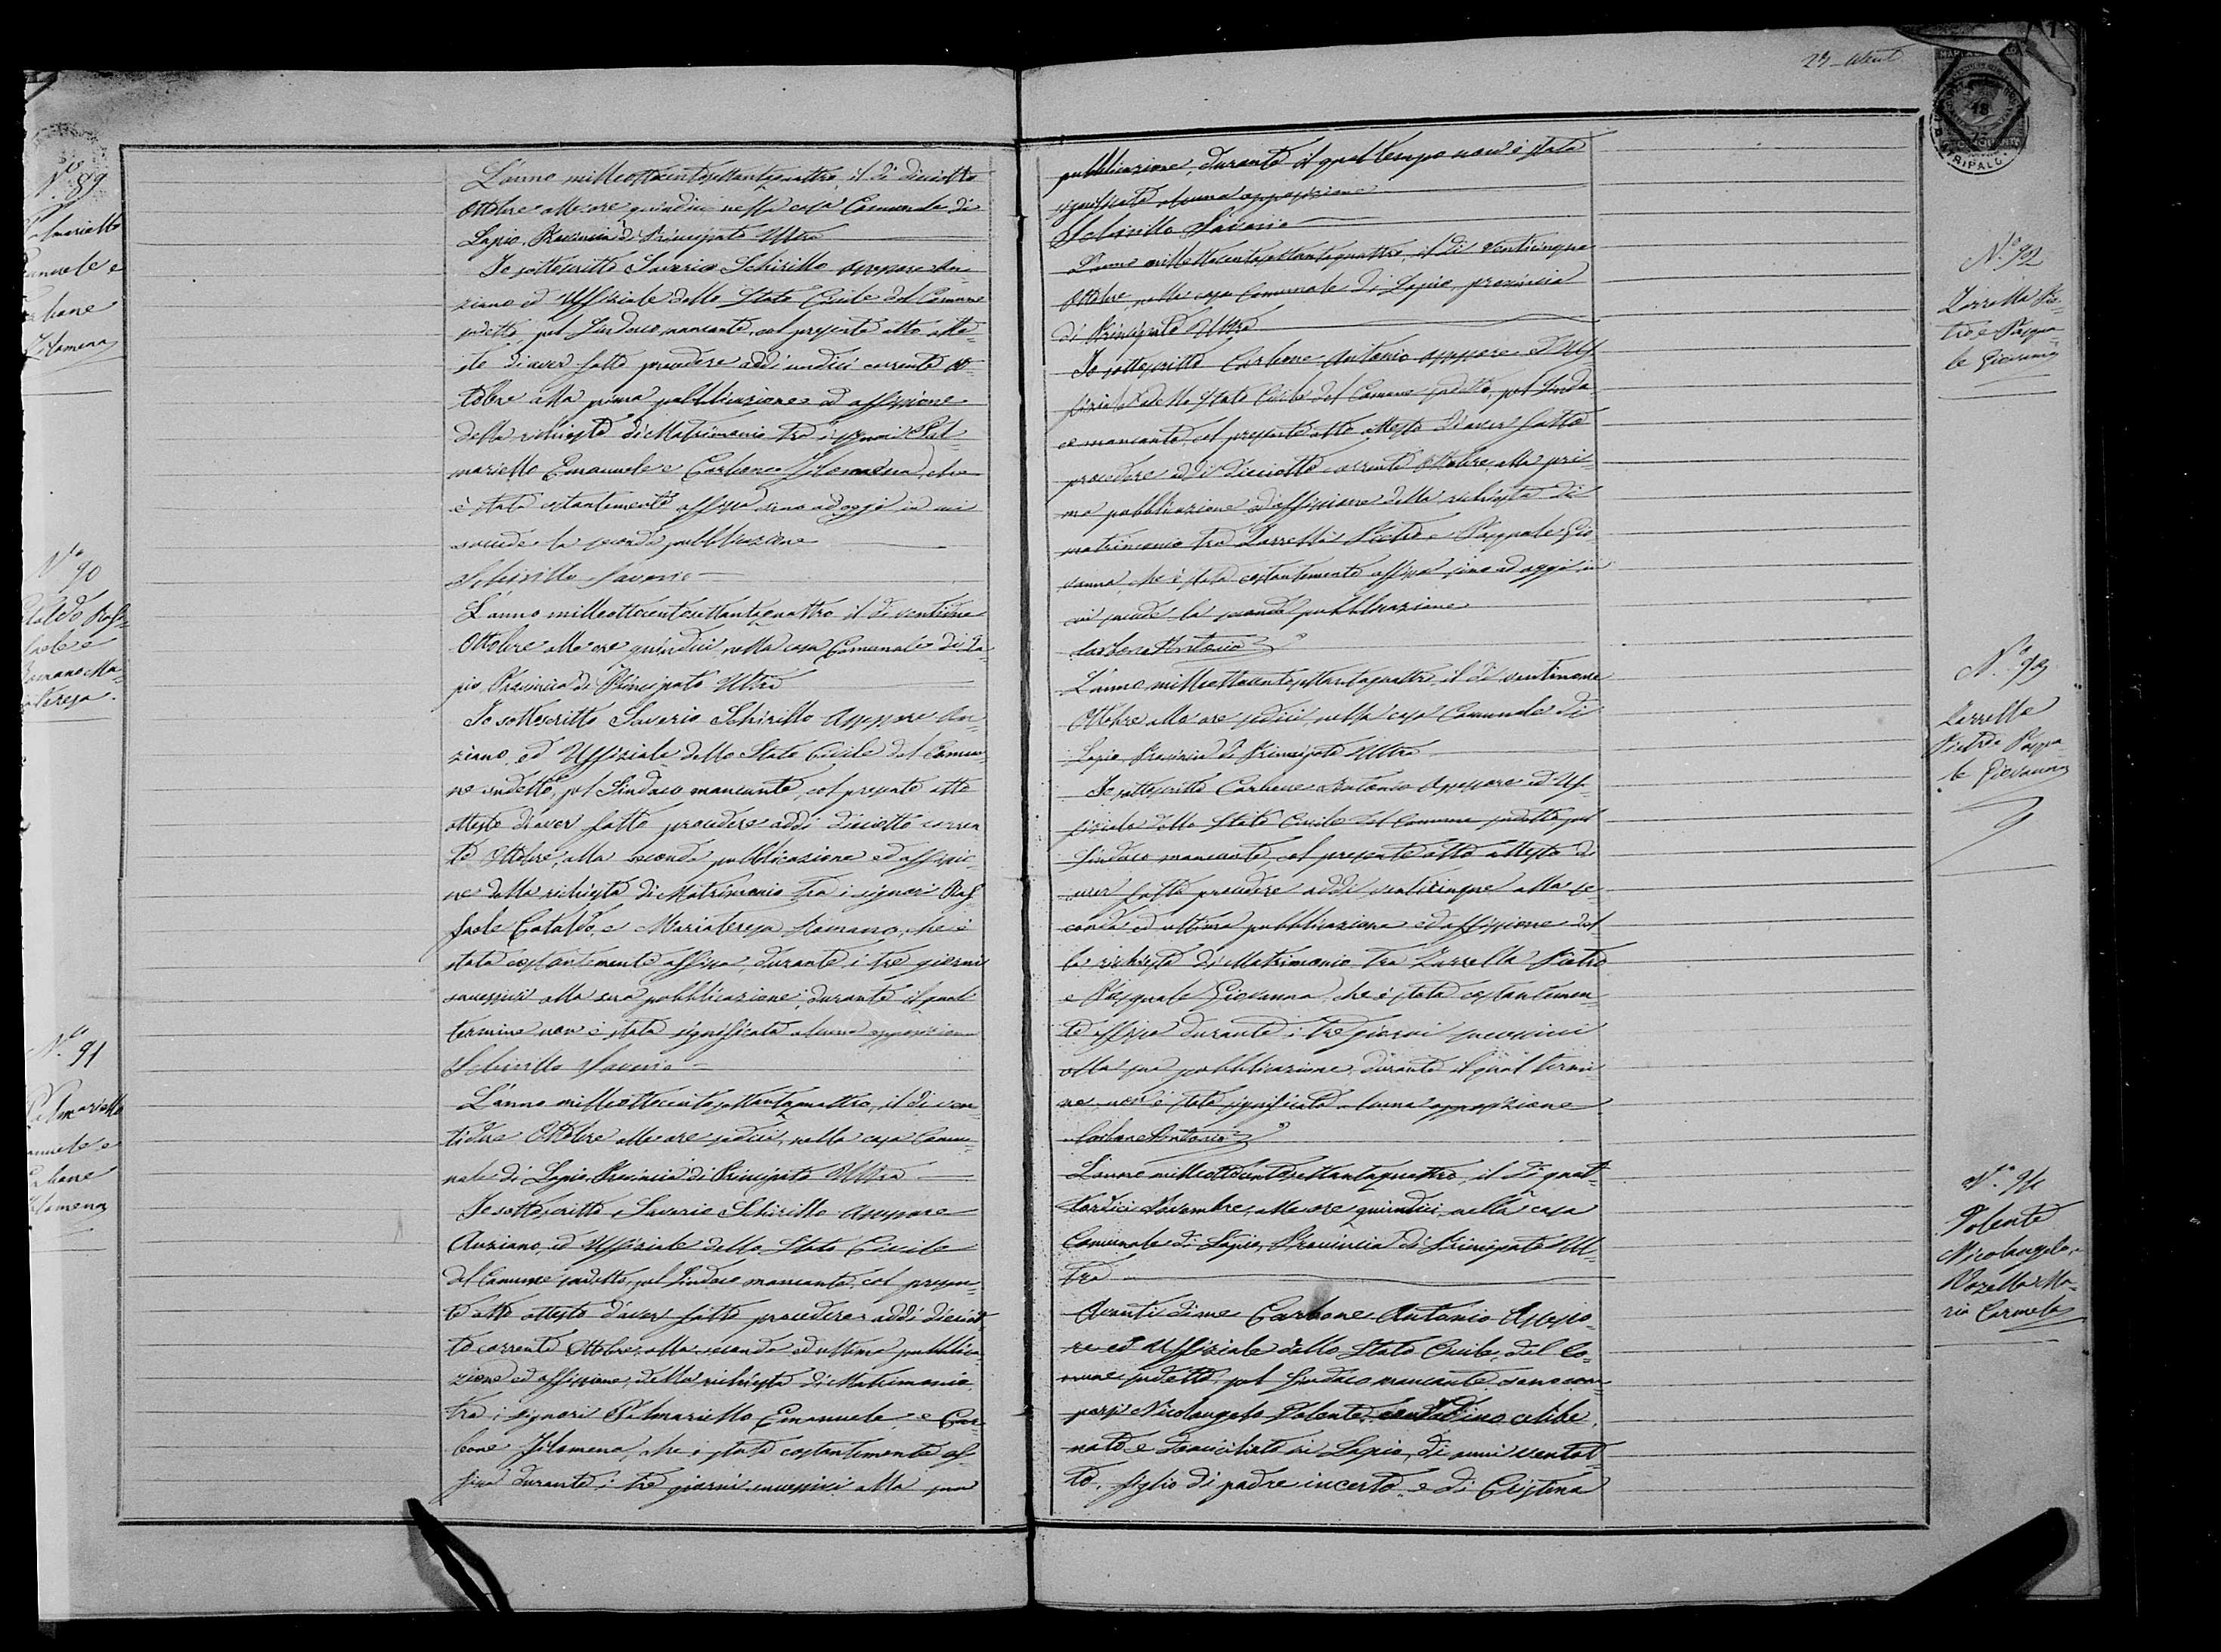 N.° 89
Palmariello
Emanuele e
Carbone
Filomena
L'anno milleottocentosettantaquattro, il dì dieciotto
Ottobre alle ore quindici nella casa Comunale di
Lapio, Provincia di Principato Ultra
Io sottoscritto Saverio Schirillo Assessore An-
ziano ed Uffiziale dello Stato Civile del Comune
sudetto, pel Sindaco mancante, col presente atto atte-
sto di aver fatto procedere addì undici corrente Ot-
tobre alla prima pubblicazione ed affissione
della richiesta di Matrimonio tra i signori Pal-
mariello Emanuele e Carbone Filomena, che
è stata costantemente affissa sino ad oggi in cui
succede la seconda pubblicazione
Schirillo Saverio
N.° 90
Cataldo Raf-
faele e
Romano Ma-
riateresa
L'anno milleottocentosettantaquattro il dì ventidue
Ottobre alle ore quindici nella casa Comunale di La-
pio, Provincia di Principato Ultra
Io sottoscritto Saverio Schirillo Assessore An-
ziano, ed Uffiziale dello Stato Civile del Comu-
ne sudetto, pel Sindaco mancante, col presente atto
attesto d'aver fatto procedere addì dieciotto corren-
te Ottobre, alla seconda pubblicazione ed affissio-
ne della richiesta di Matrimonio tra i signori Raf-
faele Cataldo, e Mariateresa Romano, che è
stata costantemente affissa, durante i tre giorni
successivi alla sua pubblicazione, durante il qual
termine non è stata significata alcuna opposizione
Schirillo Saverio
N.° 91
Palmariello
Emanuele e
Carbone
Filomena
L'anno milleottocentosettantaquattro, il dì ven-
tidue Ottobre alle ore sedici, nella casa Comu-
nale di Lapio, Provincia di Principato Ultra
Io sottoscritto, Saverio Schirillo Assessore
Anziano, ed Uffiziale dello Stato Civile
del Comune sudetto, pel Sindaco mancante, col presen-
te atto attesto d'aver fatto procedere addì dieciot-
to corrente Ottobre, alla seconda ed ultima pubblica-
zione ed affissione, della richiesta di Matrimonio,
tra i signori Palmariello Emanuele, e Car-
bone Filomena, che è stata costantemente af-
fissa durante i tre giorni successivi alla sua
23
pubblicazione, durante il qual tempo non è stata
significata alcuna opposizione
Schirillo Saverio
N.° 92
Zarrella Pie-
tro e Pasqua-
le Giovanna
L'anno milleottocentosettantaquattro, il dì venticinque
Ottobre, nella casa Comunale di Lapio, provincia
di Principato Ultra
Io sottoscritto Carbone Antonio Assessore ed Uf-
fiziale dello Stato Civile del Comune sudetto, pel Sinda-
co mancante, col presente atto attesto di aver fatto
procedere addì dieciotto corrente Ottobre, alla pri-
ma pubblicazione ed affissione della richiesta di
matrimonio tra Zarrella Pietro e Pasquale Gio-
vanna, che è stata costantemente affissa sino ad oggi in
cui succede la seconda pubblicazione
Carbone Antonio
N.° 93
Zarrella
Pietro e Pasqua-
le Giovanna
L'anno milleottocentosettantaquattro il dì ventinove
Ottobre alle ore sedici nella casa Comunale di
Lapio, Provincia di Principato Ultra
Io sottoscritto Carbone Antonio Assessore ed Uf-
fiziale dello Stato Civile del Comune sudetto, pel
Sindaco mancante, col presente atto attesto di
aver fatto procedere addì venticinque alla se-
conda ed ultima pubblicazione ed affissione del-
la richiesta di Matrimonio tra Zarrella Pietro
e Pasquale Giovanna, che è stata costantemen-
te affissa durante i tre giorni successivi
alla sua pubblicazione, durante il qual termi-
ne, non è stata significata alcuna opposizione
Carbone Antonio
N.° 94
Polente
Nicolangelo, e
Rozella Ma-
ria Carmela
L'anno milleottocentosettantaquattro, il dì quat-
tordici Novembre, alle ore quindici, nella casa
Comunale di Lapio, Provincia di Principato Ul-
tra
Avanti di me Carbone Antonio Assesso-
re ed Uffiziale dello Stato Civile, del Co-
mune sudetto, pel Sindaco mancante, sono com-
parsi Nicolangelo Polente, contadino celibe,
nato e domiciliato in Lapio, di anni ventot-
to, figlio di padre incerto, e di Cristina